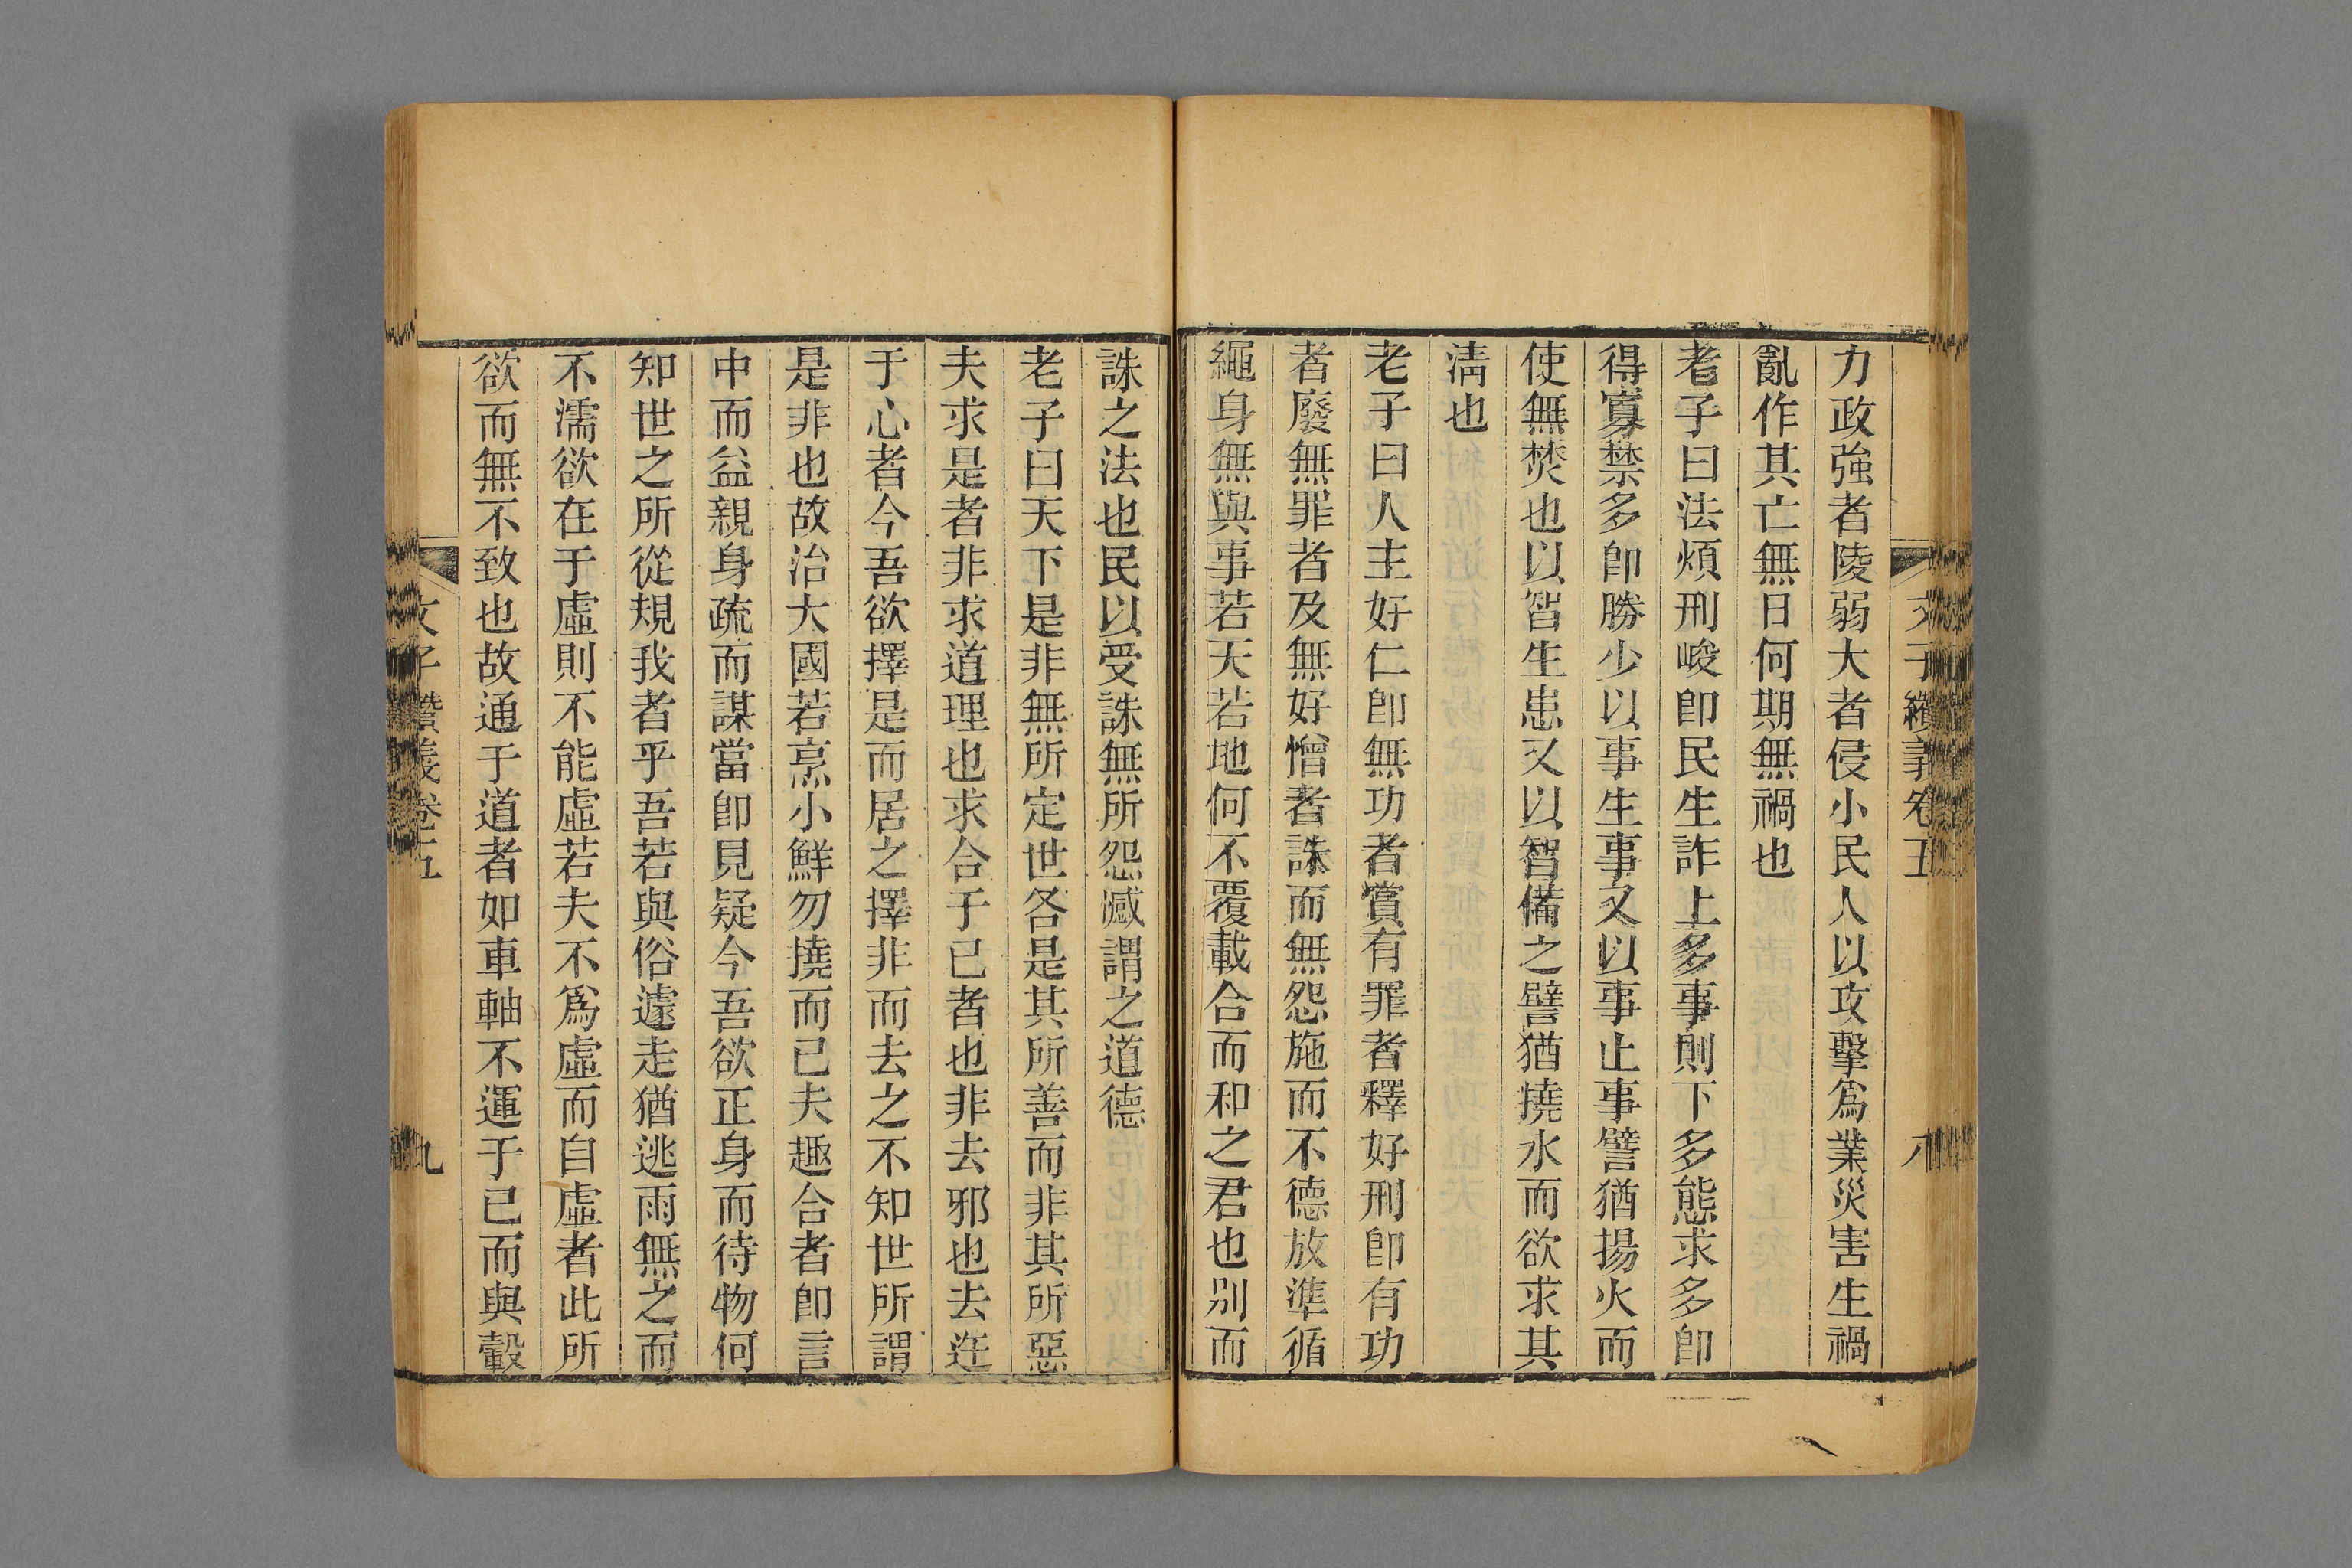 文子纘義卷五 八
力政強者陵弱大者侵小民人以攻擊爲業災害生禍
亂作其亡無日何期無禍也
老子曰法煩刑峻卽民生詐上多事則下多態求多卽
得寡禁多卽勝少以事生事又以事止事譬猶揚火而
使無焚也以智生患又以智備之譬猶撓水而欲求其
淸也
老子曰人主好仁卽無功者賞有罪者釋好刑卽有功
者廢無罪者及無好憎者誅而無怨施而不德放準循
繩身無與事若天若地何不覆載合而和之君也別而
誅之法也民以受誅無所怨憾謂之道德
老子曰天下是非無所定世各是其所善而非其所惡
夫求是者非求道理也求合于已者也非去邪也去迕
于心者今吾欲擇是而居之擇非而去之不知世所謂
是非也故治大國若烹小鮮勿撓而已夫趣合者卽言
中而益親身疏而謀當卽見疑今吾欲正身而待物何
知世之所從規我者乎吾若與俗遽走猶逃雨無之而
不濡欲在于虛則不能虛若夫不爲虛而自虛者此所
欲而無不致也故通于道者如車軸不運于已而與轂
文子纘義卷五 九